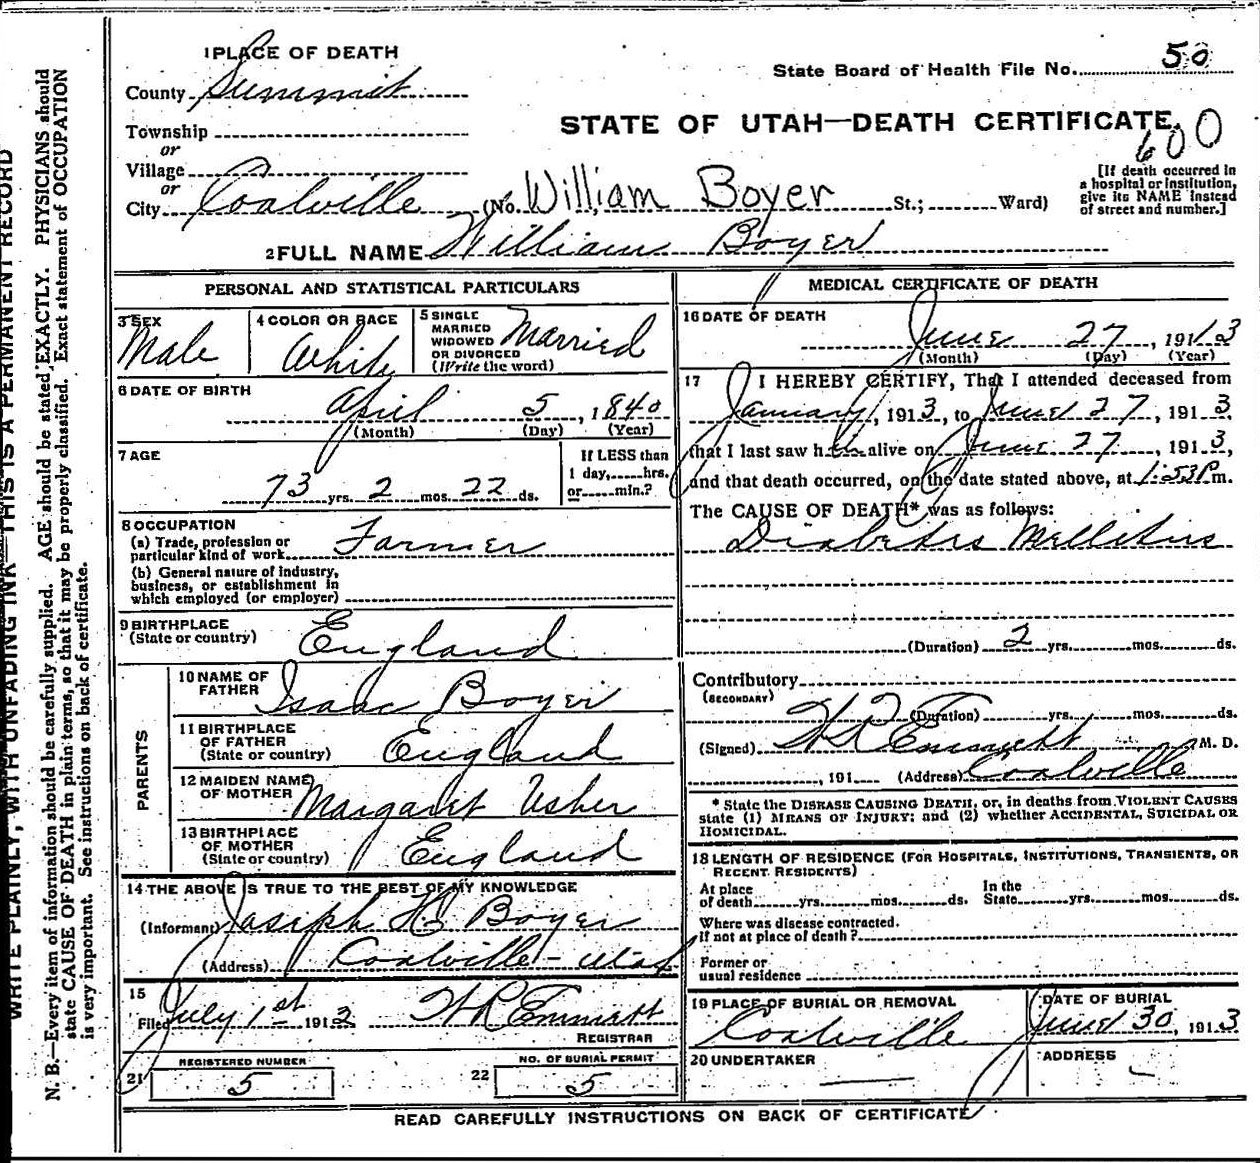 1 PLACE OF DEATH
State Board of Health File No. 50
County Summit
STATE OF UTAH—DEATH CERTIFICATE.
Township
or
600
Village
or
City Coalville (No. William Boyer St.; Ward)
[If death occurred in
a hospital or institution,
give its NAME instead
of street and number.]
2 FULL NAME William Boyer
PERSONAL AND STATISTICAL PARTICULARS
3 SEX Male
4 COLOR OR RACE White
5 SINGLE
MARRIED
WIDOWED
OR DIVORCED
(Write the word) Married
6 DATE OF BIRTH
April 5, 1840
(Month) (Day) (Year)
7 AGE
73 yrs. 2 mos. 22 ds.
If LESS than
1 day, hrs.
or min.?
8 OCCUPATION
(a) Trade, profession or
particular kind of work Farmer
(b) General nature of industry,
business, or establishment in
which employed (or employer)
9 BIRTHPLACE
(State or country) England
PARENTS
10 NAME OF
FATHER Isaac Boyer
11 BIRTHPLACE
OF FATHER
(State or country) England
12 MAIDEN NAME
OF MOTHER Margaret Usher
13 BIRTHPLACE
OF MOTHER
(State or country) England
14 THE ABOVE IS TRUE TO THE BEST OF MY KNOWLEDGE
(Informant) Joseph H. Boyer
(Address) Coalville - Utah
15
Filed July 1st 1913 H R Emmett
REGISTRAR
REGISTERED NUMBER
21 5
NO. OF BURIAL PERMIT
22 5
MEDICAL CERTIFICATE OF DEATH
16 DATE OF DEATH
June 27, 1913
(Month) (Day) (Year)
17 I HEREBY CERTIFY, That I attended deceased from
January, 1913, to June 27, 1913,
that I last saw him alive on June 27, 1913,
and that death occurred, on the date stated above, at 1:53 P m.
The CAUSE OF DEATH* was as follows:
Diabetes Mellitus
(Duration) 2 yrs. mos. ds.
Contributory
(SECONDARY)
(Duration) yrs. mos. ds.
(Signed) Emmett M. D.
, 191 (Address) Coalville
* State the DISEASE CAUSING DEATH, or, in deaths from VIOLENT CAUSES
state (1) MEANS OF INJURY; and (2) whether ACCIDENTAL, SUICIDAL OR
HOMICIDAL.
18 LENGTH OF RESIDENCE (FOR HOSPITALS, INSTITUTIONS, TRANSIENTS, OR
RECENT RESIDENTS)
At place
of death yrs. mos. ds.
In the
State yrs. mos. ds.
Where was disease contracted.
if not at place of death?
Former or
usual residence
19 PLACE OF BURIAL OR REMOVAL
Coalville
DATE OF BURIAL
June 30, 1913
20 UNDERTAKER
ADDRESS
READ CAREFULLY INSTRUCTIONS ON BACK OF CERTIFICATE
WRITE PLAINLY, WITH UNFADING INK—THIS IS A PERMANENT RECORD
N. B.—Every item of information should be carefully supplied. AGE should be stated EXACTLY. PHYSICIANS should
state CAUSE OF DEATH in plain terms, so that it may be properly classified. Exact statement of OCCUPATION
is very important. See instructions on back of certificate.